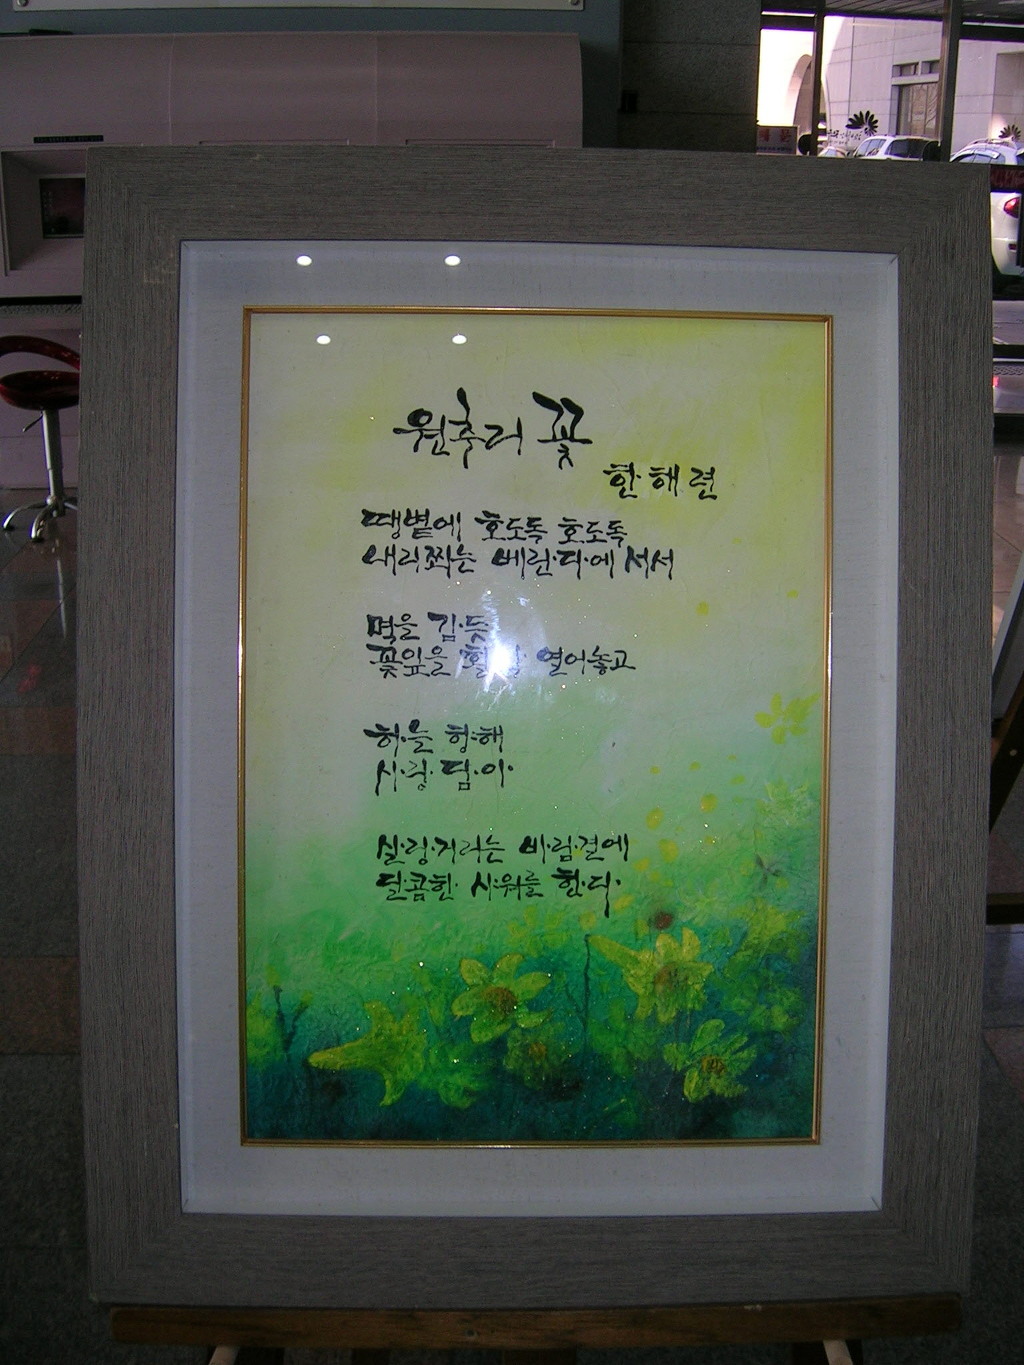 원추리 꽃
한해련
땡볕에 호도독 호도독
내리쬐는 베란다에 서서
멱을 감듯
꽃잎을 열어놓고
하늘 향해
사랑 담아
살랑거리는 바람결에
달콤한 샤워를 한다.